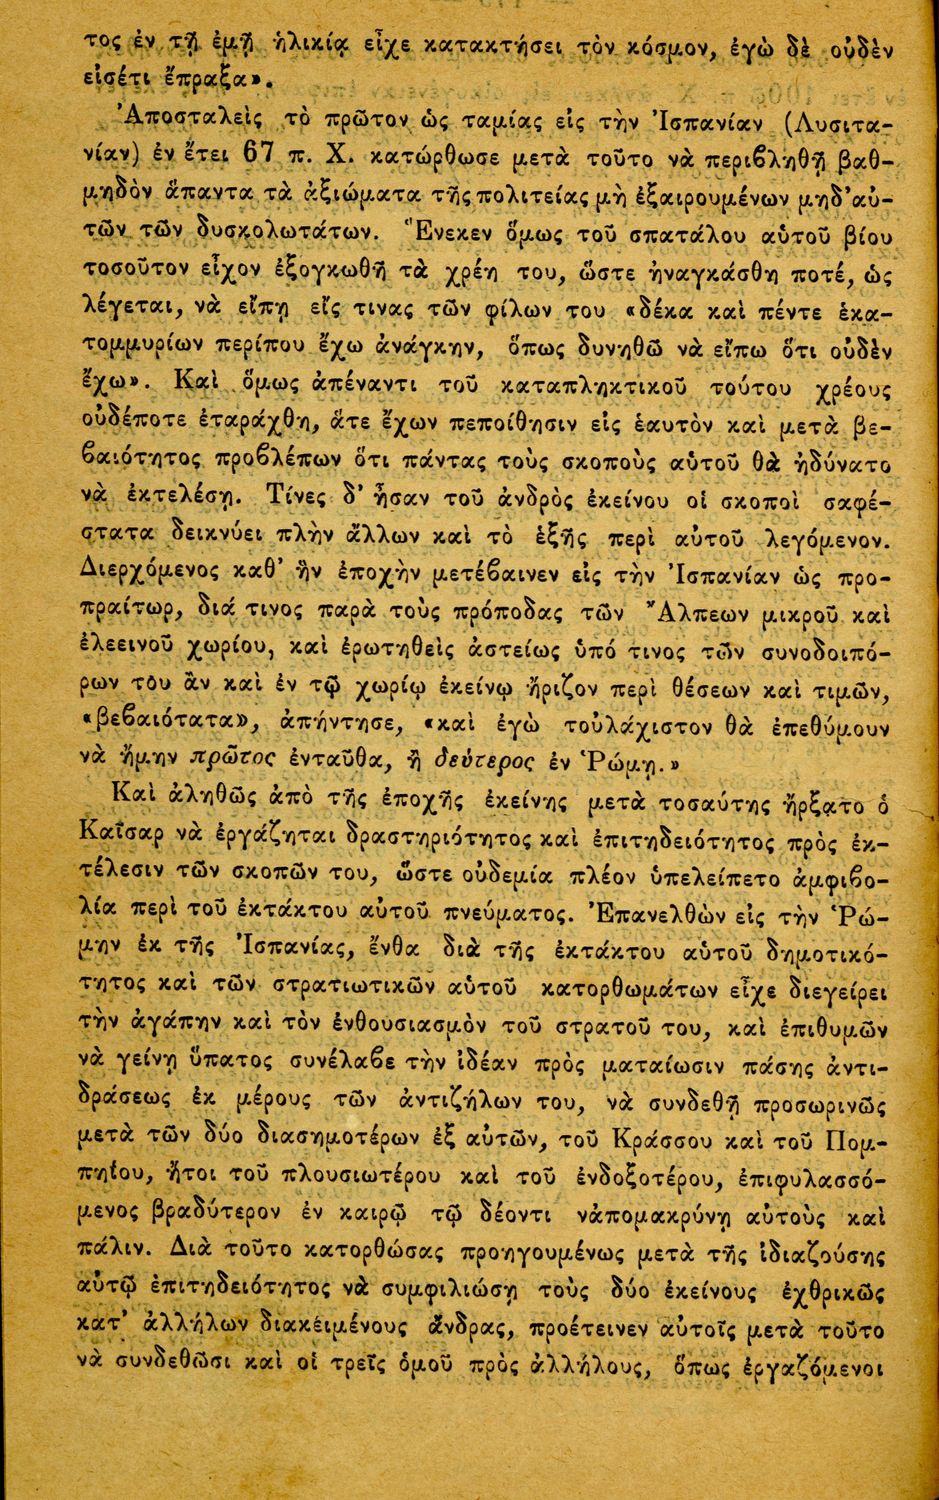 τος ἐν τῇ ἐμῇ ἡλικίᾳ εἶχε κατακτήσει τὸν κόσμον, ἐγὼ δὲ οὐδὲν
εἰσέτι ἔπραξα».
Ἀποσταλεὶς τὸ πρῶτον ὡς ταμίας εἰς τὴν Ἰσπανίαν (Λυσιτα-
νίαν) ἐν ἔτει 67 π. Χ. κατώρθωσε μετὰ τοῦτο νὰ περιβληθῇ βαθ-
μηδὸν ἅπαντα τὰ ἀξιώματα τῆς πολιτείας μὴ ἐξαιρουμένων μηδ' αὐ-
τῶν τῶν δυσκολωτάτων. Ἕνεκεν ὅμως τοῦ σπατάλου αὐτοῦ βίου
τοσοῦτον εἶχον ἐξογκωθῇ τὰ χρέη του, ὥστε ἠναγκάσθη ποτέ, ὡς
λέγεται, νὰ εἴπῃ εἴς τινας τῶν φίλων του «δέκα καὶ πέντε ἑκα-
τομμυρίων περίπου ἔχω ἀνάγκην, ὅπως δυνηθῶ νὰ εἴπω ὅτι οὐδὲν
ἔχω». Καὶ ὅμως ἀπέναντι τοῦ καταπληκτικοῦ τούτου χρέους
οὐδέποτε ἐταράχθη, ἅτε ἔχων πεποίθησιν εἰς ἑαυτὸν καὶ μετὰ βε-
βαιότητος προβλέπων ὅτι πάντας τοὺς σκοποὺς αὐτοῦ θὰ ἠδύνατο
νὰ ἐκτελέσῃ. Τίνες δ' ἦσαν τοῦ ἀνδρὸς ἐκείνου οἱ σκοποὶ σαφέ-
στατα δεικνύει πλὴν ἄλλων καὶ τὸ ἑξῆς περὶ αὐτοῦ λεγόμενον.
Διερχόμενος καθ' ἣν ἐποχὴν μετέβαινεν εἰς τὴν Ἰσπανίαν ὡς προ-
πραίτωρ, διά τινος παρὰ τοὺς πρόποδας τῶν Ἄλπεων μικροῦ καὶ
ἐλεεινοῦ χωρίου, καὶ ἐρωτηθεὶς ἀστείως ὑπό τινος τῶν συνοδοιπό-
ρων του ἂν καὶ ἐν τῷ χωρίῳ ἐκείνῳ ἤριζον περὶ θέσεων καὶ τιμῶν,
«βεβαιότατα», ἀπήντησε, «καὶ ἐγὼ τοὐλάχιστον θὰ ἐπεθύμουν
νὰ ἤμην πρῶτος ἐνταῦθα, ἢ δεύτερος ἐν Ῥώμῃ.»
Καὶ ἀληθῶς ἀπὸ τῆς ἐποχῆς ἐκείνης μετὰ τοσαύτης ἤρξατο ὁ
Καῖσαρ νὰ ἐργάζηται δραστηριότητος καὶ ἐπιτηδειότητος πρὸς ἐκ-
τέλεσιν τῶν σκοπῶν του, ὥστε οὐδεμία πλέον ὑπελείπετο ἀμφιβο-
λία περὶ τοῦ ἐκτάκτου αὐτοῦ πνεύματος. Ἐπανελθὼν εἰς τὴν Ῥώ-
μην ἐκ τῆς Ἰσπανίας, ἔνθα διὰ τῆς ἐκτάκτου αὐτοῦ δημοτικό-
τητος καὶ τῶν στρατιωτικῶν αὐτοῦ κατορθωμάτων εἶχε διεγείρει
τὴν ἀγάπην καὶ τὸν ἐνθουσιασμὸν τοῦ στρατοῦ του, καὶ ἐπιθυμῶν
νὰ γείνῃ ὕπατος συνέλαβε τὴν ἰδέαν πρὸς ματαίωσιν πάσης ἀντι-
δράσεως ἐκ μέρους τῶν ἀντιζήλων του, νὰ συνδεθῇ προσωρινῶς
μετὰ τῶν δύο διασημοτέρων ἐξ αὐτῶν, τοῦ Κράσσου καὶ τοῦ Πομ-
πηΐου, ἤτοι τοῦ πλουσιωτέρου καὶ τοῦ ἐνδοξοτέρου, ἐπιφυλασσό-
μενος βραδύτερον ἐν καιρῷ τῷ δέοντι νἀπομακρύνῃ αὐτοὺς καὶ
πάλιν. Διὰ τοῦτο κατορθώσας προηγουμένως μετὰ τῆς ἰδιαζούσης
αὐτῷ ἐπιτηδειότητος νὰ συμφιλιώσῃ τοὺς δύο ἐκείνους ἐχθρικῶς
κατ' ἀλλήλων διακειμένους ἄνδρας, προέτεινεν αὐτοῖς μετὰ τοῦτο
νὰ συνδεθῶσι καὶ οἱ τρεῖς ὁμοῦ πρὸς ἀλλήλους, ὅπως ἐργαζόμενοι